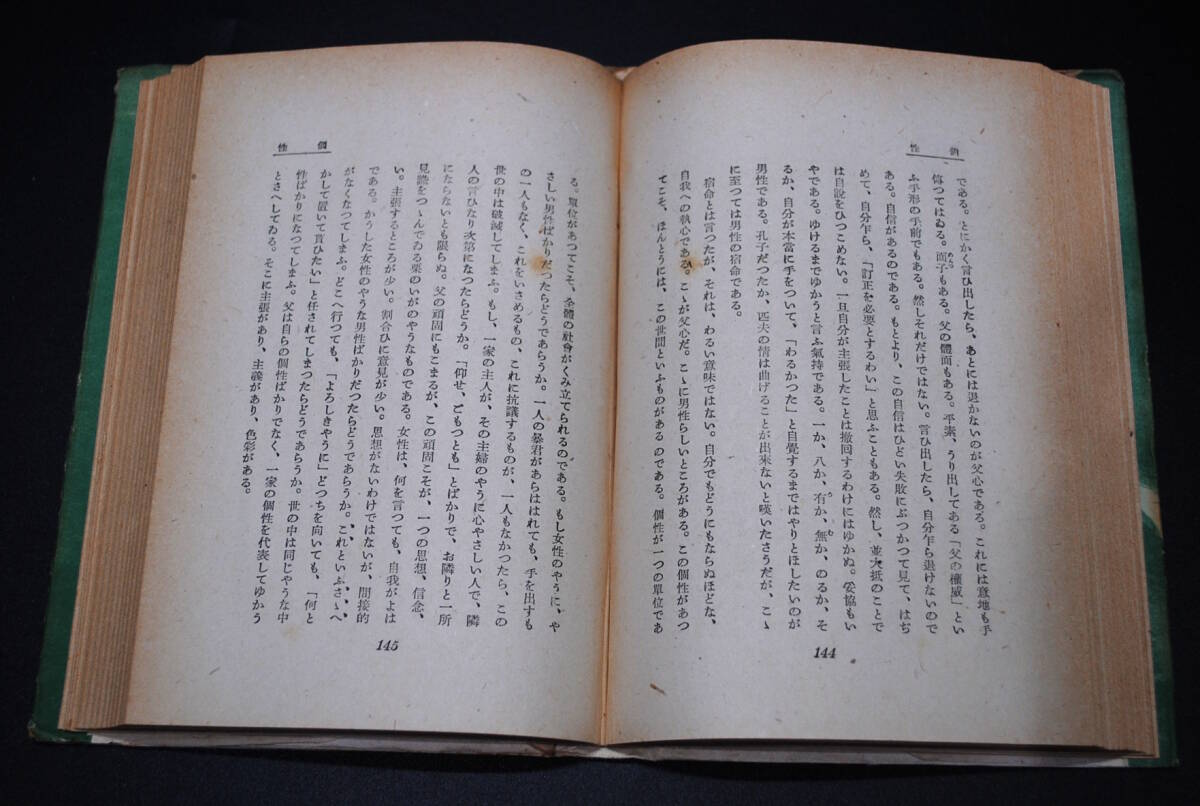 個性
である。とにかく言ひ出したら、あとには退かないのが父心である。これには意地も手
傳つてはゐる。面子もある。父の體面もある。平素、うり出してある「父の權威」とい
ふ手形の手前でもある。然しそれだけではない。言ひ出したら、自分乍ら退けないので
ある。自信があるのである。もとより、この自信はひどい失敗にぶつかつて見て、はぢ
めて、自分乍ら、「訂正を必要とするわい」と思ふこともある。然し、並大抵のことで
は自說をひつこめない。一旦自分が主張したことは撤回するわけにはゆかぬ。妥協もい
やである。ゆけるまでゆかうと言ふ氣持である。一か、八か、有か、無か、のるか、そ
るか、自分が本當に手をついて、「わるかつた」と自覺するまではやりとほしたいのが
男性である。孔子だつたか、匹夫の情は曲げることが出來ないと嘆いたさうだが、こゝ
に至つては男性の宿命である。
宿命とは言つたが、それは、わるい意味ではない。自分でもどうにもならぬほどな、
自我への執心である。こゝが父心だ。こゝに男性らしいところがある。この個性があつ
てこそ、ほんとうには、この世間といふものがあるのである。個性が一つの單位であ
144
個性
る。單位があつてこそ、全體の社會がくみ立てられるのである。もし女性のやうに、や
さしい男性ばかりだつたらどうであらうか。一人の暴君があらはれても、手を出すも
の一人もなく、これをいさめるもの、これに抗議するものが、一人もなかつたら、この
世の中は破滅してしまふ。もし、一家の主人が、その主婦のやうに心やさしい人で、隣
人の言ひなり次第になつたらどうか。「仰せ、ごもつとも」とばかりで、お隣りと一所
にならないとも限らぬ。父の頑固にもこまるが、この頑固こそが、一つの思想、信念、
見識をつゝんでゐる栗のいがのやうなものである。女性は、何を言つても、自我がよは
い。主張するところが少い。割合ひに意見が少い。思想がないわけではないが、間接的
である。かうした女性のやうな男性ばかりだつたらどうであらうか。これといふさゝへ
がなくなつてしまふ。どこへ行つても、「よろしきやうに」どつちを向いても、「何と
かして置いて貰ひたい」と任されてしまつたらどうであらうか。世の中は同じやうな中
性ばかりになつてしまふ。父は自らの個性ばかりでなく、一家の個性を代表してゆかう
とさへしてゐる。そこに主張があり、主義があり、色彩がある。
145